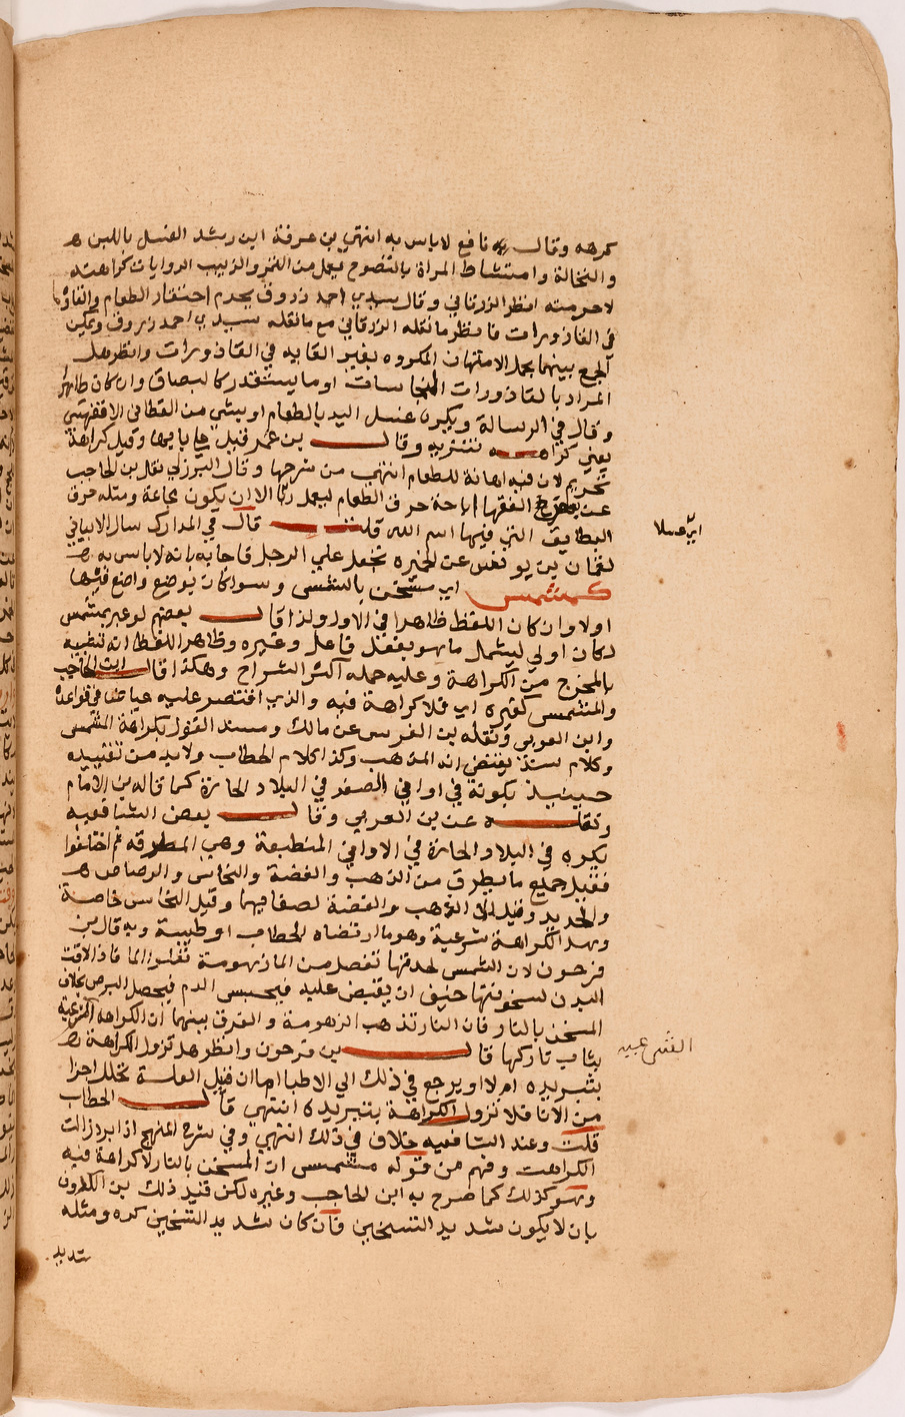 كرهه وقال نافع لا باس به انتهي بن عرفة ابن رشد الغسل باللبن
والنخالة وامتشاط المراة بالنضوح يعمل من التمر والزبيب الروايات كراهته
لا حرمته انظر الزرقاني وقال سيدي احمد زروق يحرم احتقار الطعام والقاؤه
في القاذورات فانظر ما نقله الزرقاني مع ما نقله سيدي احمد زروق ويمكن
الجمع بينهما بحمل الامتهان المكروه بغير القايه في القاذورات وانظر هل
المراد بالقاذورات النجاسات او ما يستقذر كالبصاق وان كان طاهرا
وقال في الرسالة ويكره غسل اليد بالطعام او بشي من القطاني الاقفهسي
يعني كراهه تنزيه وقال بن عمر قيل هنا بابها وقيل كراهة
تحريم لان فيه اهانة للطعام انتهي من شرحها وقال البرزلي نقل بن الحاجب
عن بعض الفقها اباحة حرق الطعام ليعمل الا ان يكون مجاعة ومثله حرق
البطايق التي فيها اسم الله قلت قال في المدارك سال الابياني
لقمان بن يوسف عن الخبزه تجعل علي الرجل فاجابه بانه لا باس به
كمشمس اي مسخن بالشمس وسوا كان بوضع واضع فيها
اولا وان كان اللفظ ظاهرا في الاول ولذا قال بعضهم لو عبر بمتشمس
لكان اولي ليشمل ما هو بفعل فاعل وغيره وظاهر اللفظ انه تشبيه
بالمخرج من الكراهة وعليه حمله اكثر الشراح وهكذا قال ابن الحاجب
والمتشمس كغيره اي فلا كراهة فيه والذي اقتصر عليه عياض في قواعده
وابن العربي ونقله بن الفرس عن مالك ومسند القول بكراهة المشمس
وكلام سند يقتضي انه المذهب وكذا كلام الحطاب ولا بد من تقييده
حينيذ بكونه في اواني الصفر في البلاد الحارة كما قاله بن الامام
ونقله عن بن العربي وقال بعض الشافعيه
يكره في البلاد الحارة في الاواني المنطبعة وهي المطرقه ثم اختلفوا
فقيل جميع ما يطرق من الذهب والفضة والنحاس والرصاص
والحديد وقيل الا الذهب والفضة لصفايهما وقيل النحاس خاصة
وهذه الكراهة شرعية وهو ما ارتضاه الحطاب او طبية وبه قال بن
فرحون لان الشمس لحدتها تفصل من الانا زهومة تعلوا الما فاذا لاقت
البدن لسخونتها خيف ان يقبض عليه فيحبس الدم فيحصل البرص بخلاف
المسخن بالنار فان النار تذهب الزهومة والفرق بينهما ان الكراهه الشرعية
يثاب تاركها قال بن فرحون وانظر هل تزول الكراهة
بتبريده ام لا او يرجع في ذلك الي الاطبا اما ان قيل العلة تحلل اجزا
من الانا فلا تزول الكراهة بتبريده انتهي قال الحطاب
قلت وعند الشافعيه خلاف في ذلك انتهي وفي شرح المنهج اذا برد زالت
الكراهت وفهم من قوله مشمس ان المسخن بالنار لا كراهة فيه
وهو كذلك كما صرح به ابن الحاجب وغيره لكن قيد ذلك بن الكدوف
بان لا يكون شديد التسخين فان كان شديد التسخين كره ومثله
شديد